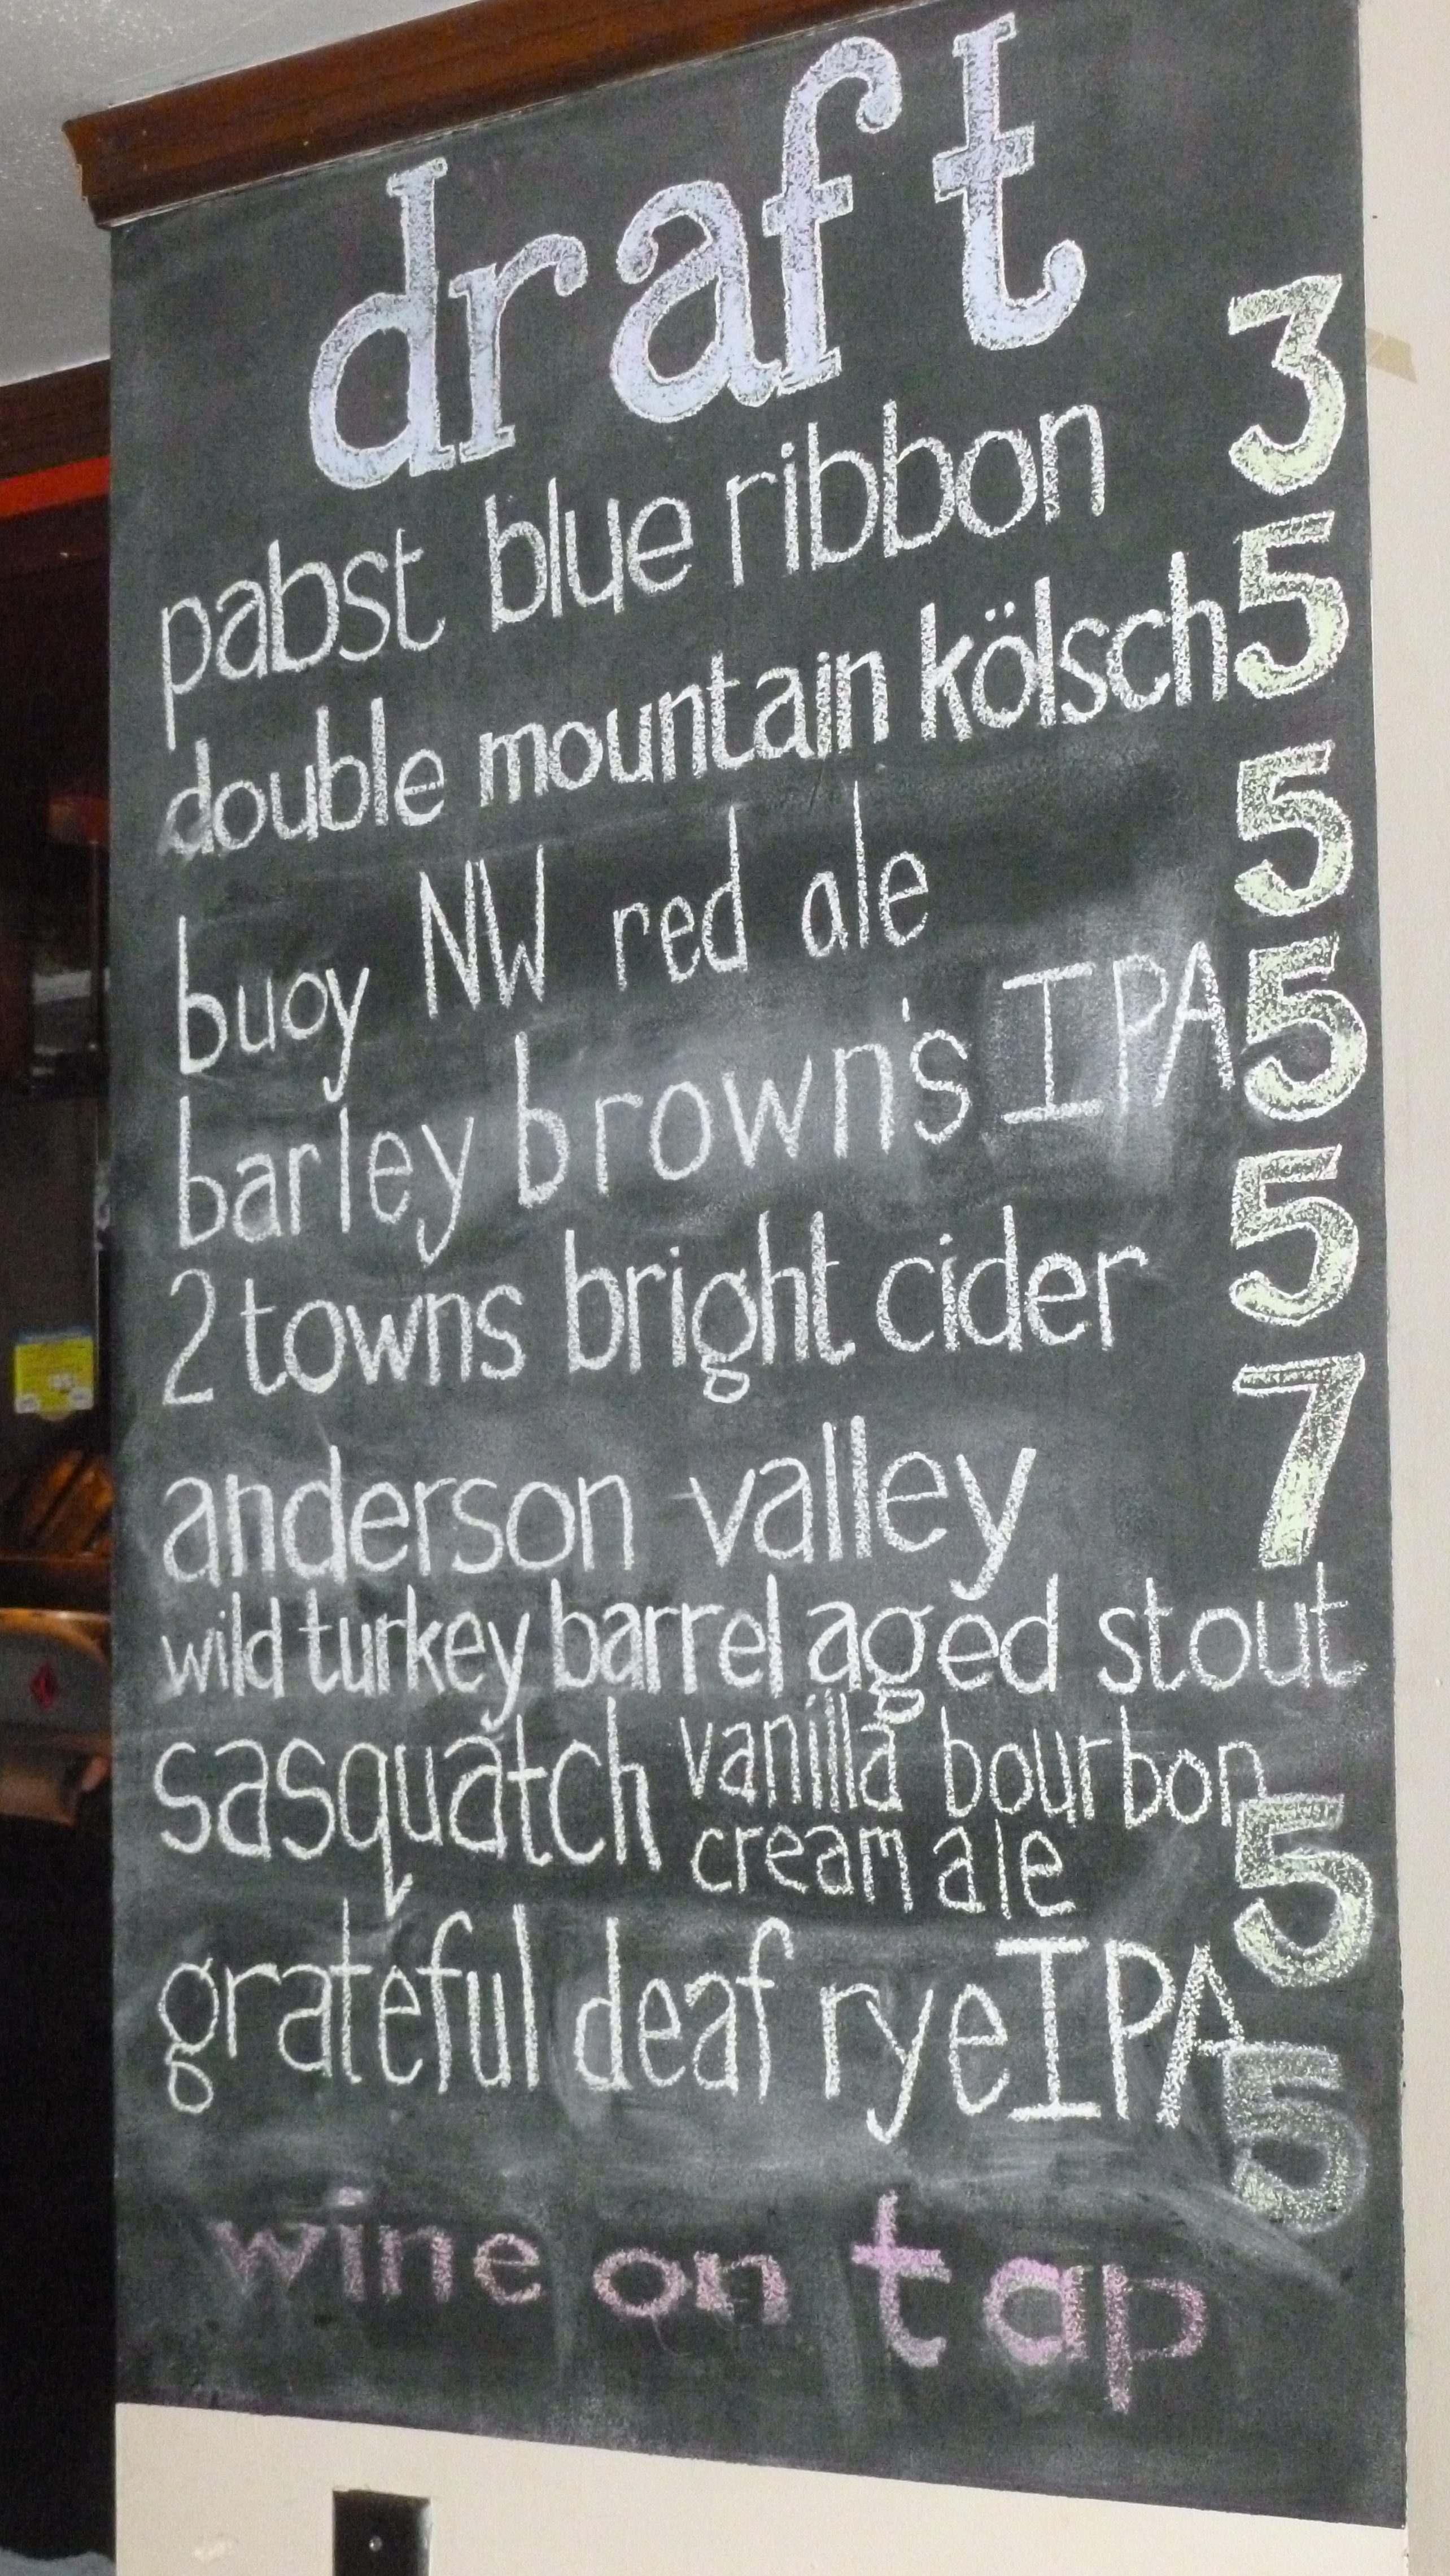 draft
pabst blue ribbon 3
double mountain kölsch 5
buoy NW red ale 5
barley brown's IPA 5
2 towns bright cider 5
anderson valley 7
wild turkey barrel aged stout
sasquatch vanilla bourbon
cream ale 5
grateful deaf rye IPA 5
wine on tap